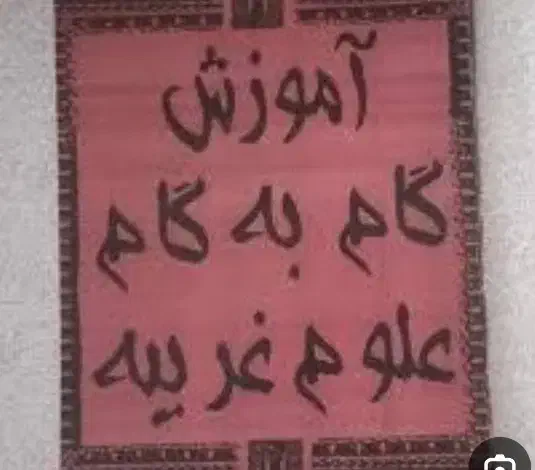 آموزش
گام به گام
علوم غریبه